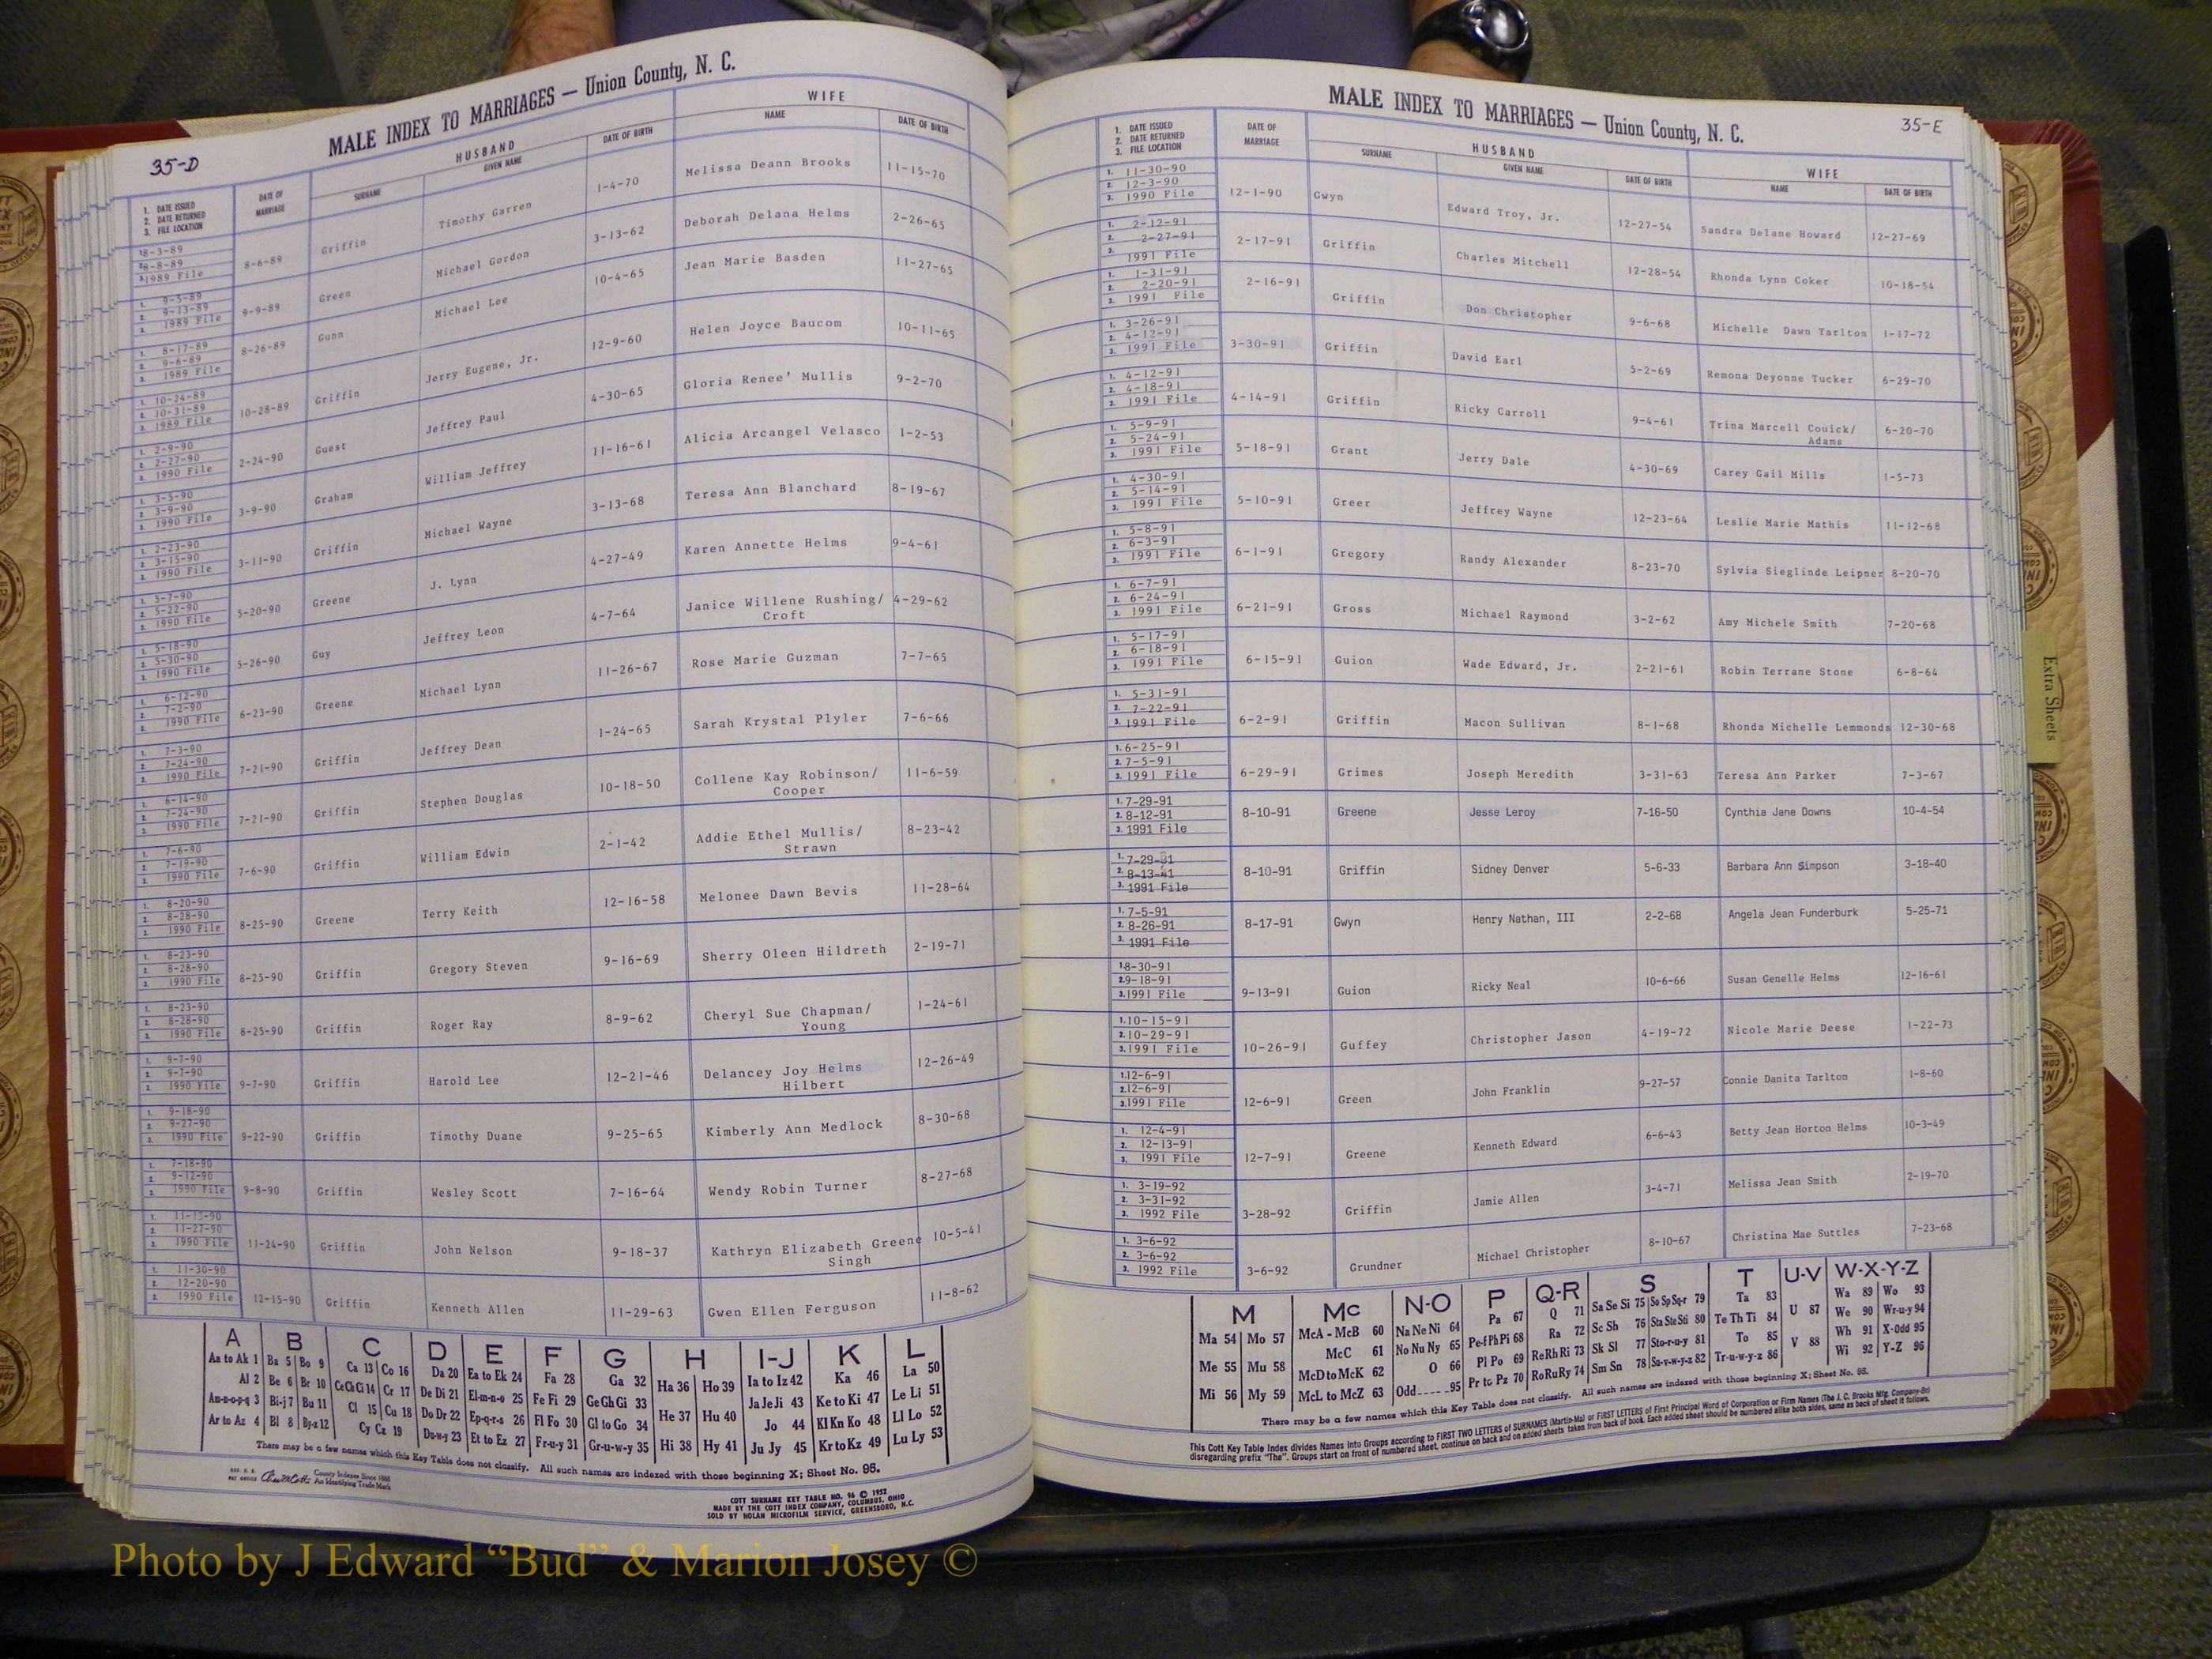 MALE INDEX TO MARRIAGES — Union County, N. C.
35-D
1. DATE ISSUED
2. DATE RETURNED
3. FILE LOCATION
DATE OF MARRIAGE
HUSBAND
SURNAME GIVEN NAME DATE OF BIRTH
WIFE
NAME DATE OF BIRTH
18-3-89
28-8-89
31989 File
8-6-89 Griffin Timothy Garren 1-4-70 Melissa Deann Brooks 11-15-70
1. 9-5-89
2. 9-13-89
3. 1989 File
9-9-89 Green Michael Gordon 3-13-62 Deborah Delana Helms 2-26-65
1. 8-17-89
2. 9-6-89
3. 1989 File
8-26-89 Gunn Michael Lee 10-4-65 Jean Marie Basden 11-27-65
1. 10-24-89
2. 10-31-89
3. 1989 File
10-28-89 Griffin Jerry Eugene, Jr. 12-9-60 Helen Joyce Baucom 10-11-65
1. 2-9-90
2. 2-27-90
3. 1990 File
2-24-90 Guest Jeffrey Paul 4-30-65 Gloria Renee' Mullis 9-2-70
1. 3-5-90
2. 3-9-90
3. 1990 File
3-9-90 Graham William Jeffrey 11-16-61 Alicia Arcangel Velasco 1-2-53
1. 2-23-90
2. 3-15-90
3. 1990 File
3-11-90 Griffin Michael Wayne 3-13-68 Teresa Ann Blanchard 8-19-67
1. 5-7-90
2. 5-22-90
3. 1990 File
5-20-90 Greene J. Lynn 4-27-49 Karen Annette Helms 9-4-61
1. 5-18-90
2. 5-30-90
3. 1990 File
5-26-90 Guy Jeffrey Leon 4-7-64 Janice Willene Rushing/ 4-29-62
Croft
1. 6-12-90
2. 7-2-90
3. 1990 File
6-23-90 Greene Michael Lynn 11-26-67 Rose Marie Guzman 7-7-65
1. 7-3-90
2. 7-24-90
3. 1990 File
7-21-90 Griffin Jeffrey Dean 1-24-65 Sarah Krystal Plyler 7-6-66
1. 6-14-90
2. 7-24-90
3. 1990 File
7-21-90 Griffin Stephen Douglas 10-18-50 Collene Kay Robinson/ 11-6-59
Cooper
1. 7-6-90
2. 7-19-90
3. 1990 File
7-6-90 Griffin William Edwin 2-1-42 Addie Ethel Mullis/ 8-23-42
Strawn
1. 8-20-90
2. 8-28-90
3. 1990 File
8-25-90 Greene Terry Keith 12-16-58 Melonee Dawn Bevis 11-28-64
1. 8-23-90
2. 8-28-90
3. 1990 File
8-25-90 Griffin Gregory Steven 9-16-69 Sherry Oleen Hildreth 2-19-71
1. 8-23-90
2. 8-28-90
3. 1990 File
8-25-90 Griffin Roger Ray 8-9-62 Cheryl Sue Chapman/ 1-24-61
Young
1. 9-7-90
2. 9-7-90
3. 1990 File
9-7-90 Griffin Harold Lee 12-21-46 Delancey Joy Helms 12-26-49
Hilbert
1. 9-18-90
2. 9-27-90
3. 1990 File
9-22-90 Griffin Timothy Duane 9-25-65 Kimberly Ann Medlock 8-30-68
1. 7-18-90
2. 9-12-90
3. 1990 File
9-8-90 Griffin Wesley Scott 7-16-64 Wendy Robin Turner 8-27-68
2. 11-27-90
3. 1990 File
11-24-90 Griffin John Nelson 9-18-37 Kathryn Elizabeth Greene 10-5-41
Singh
1. 11-30-90
2. 12-20-90
3. 1990 File
12-15-90 Griffin Kenneth Allen 11-29-63 Gwen Ellen Ferguson 11-8-62
A B C D E F G H I-J K L
Aa to Ak 1 Ba 5 Bo 9 Ca 13 Co 16 Da 20 Ea to Ek 24 Fa 28 Ga 32 Ha 36 Ho 39 Ia to Iz 42 Ka 46 La 50
Al 2 Be 6 Br 10 Ce Ch Ci 14 Cr 17 De Di 21 El-m-n-o 25 Fe Fi 29 Ge Gh Gi 33 He 37 Hu 40 Ja Je Ji 43 Ke to Ki 47 Le Li 51
Am-n-o-p-q 3 Bi-j 7 Bu 11 Cl 15 Cu 18 Do Dr 22 Ep-q-r-s 26 Fl Fo 30 Gl to Go 34 Jo 44 Kl Kn Ko 48 Ll Lo 52
Ar to Az 4 Bl 8 By-z 12 Cy Cz 19 Du-w-y 23 Et to Ez 27 Fr-u-y 31 Gr-u-w-y 35 Hi 38 Hy 41 Ju Jy 45 Kr to Kz 49 Lu Ly 53
There may be a few names which this Key Table does not classify. All such names are indexed with those beginning X; Sheet No. 95.
County Indexes Since 1888
An Identifying Trade Mark
COTT SURNAME KEY TABLE NO. 96 © 1952
MADE BY THE COTT INDEX COMPANY, COLUMBUS, OHIO
SOLD BY NOLAN MICROFILM SERVICE, GREENSBORO, N.C.
MALE INDEX TO MARRIAGES — Union County, N. C.
35-E
1. DATE ISSUED
2. DATE RETURNED
3. FILE LOCATION
DATE OF MARRIAGE
HUSBAND
SURNAME GIVEN NAME DATE OF BIRTH
WIFE
NAME DATE OF BIRTH
1. 11-30-90
2. 12-3-90
3. 1990 File
12-1-90 Gwyn Edward Troy, Jr. 12-27-54 Sandra Delane Howard 12-27-69
1. 2-12-91
2. 2-27-91
3. 1991 File
2-17-91 Griffin Charles Mitchell 12-28-54 Rhonda Lynn Coker 10-18-54
1. 1-31-91
2. 2-20-91
3. 1991 File
2-16-91 Griffin Don Christopher 9-6-68 Michelle Dawn Tarlton 1-17-72
1. 3-26-91
2. 4-12-91
3. 1991 File
3-30-91 Griffin David Earl 5-2-69 Remona Deyonne Tucker 6-29-70
1. 4-12-91
2. 4-18-91
3. 1991 File
4-14-91 Griffin Ricky Carroll 9-4-61 Trina Marcell Couick/ 6-20-70
Adams
1. 5-9-91
2. 5-24-91
3. 1991 File
5-18-91 Grant Jerry Dale 4-30-69 Carey Gail Mills 1-5-73
1. 4-30-91
2. 5-14-91
3. 1991 File
5-10-91 Greer Jeffrey Wayne 12-23-64 Leslie Marie Mathis 11-12-68
1. 5-8-91
2. 6-3-91
3. 1991 File
6-1-91 Gregory Randy Alexander 8-23-70 Sylvia Sieglinde Leipner 8-20-70
1. 6-7-91
2. 6-24-91
3. 1991 File
6-21-91 Gross Michael Raymond 3-2-62 Amy Michele Smith 7-20-68
1. 5-17-91
2. 6-18-91
3. 1991 File
6-15-91 Guion Wade Edward, Jr. 2-21-61 Robin Terrane Stone 6-8-64
1. 5-31-91
2. 7-22-91
3. 1991 File
6-2-91 Griffin Macon Sullivan 8-1-68 Rhonda Michelle Lemmonds 12-30-68
1. 6-25-91
2. 7-5-91
3. 1991 File
6-29-91 Grimes Joseph Meredith 3-31-63 Teresa Ann Parker 7-3-67
1. 7-29-91
2. 8-12-91
3. 1991 File
8-10-91 Greene Jesse Leroy 7-16-50 Cynthia Jane Downs 10-4-54
1. 7-29-91
2. 8-13-91
3. 1991 File
8-10-91 Griffin Sidney Denver 5-6-33 Barbara Ann Simpson 3-18-40
1. 7-5-91
2. 8-26-91
3. 1991 File
8-17-91 Gwyn Henry Nathan, III 2-2-68 Angela Jean Funderburk 5-25-71
18-30-91
2.9-18-91
3.1991 File
9-13-91 Guion Ricky Neal 10-6-66 Susan Genelle Helms 12-16-61
1.10-15-91
2.10-29-91
3.1991 File
10-26-91 Guffey Christopher Jason 4-19-72 Nicole Marie Deese 1-22-73
1.12-6-91
2.12-6-91
3.1991 File
12-6-91 Green John Franklin 9-27-57 Connie Danita Tarlton 1-8-60
1. 12-4-91
2. 12-13-91
3. 1991 File
12-7-91 Greene Kenneth Edward 6-6-43 Betty Jean Horton Helms 10-3-49
1. 3-19-92
2. 3-31-92
3. 1992 File
3-28-92 Griffin Jamie Allen 3-4-71 Melissa Jean Smith 2-19-70
1. 3-6-92
2. 3-6-92
3. 1992 File
3-6-92 Grundner Michael Christopher 8-10-67 Christina Mae Suttles 7-23-68
M Mc N-O P Q-R S T U-V W-X-Y-Z
Ma 54 Mo 57 McA - McB 60 Na Ne Ni 64 Pa 67 Q 71 Sa Se Si 75 So Sp Sq-r 79 Ta 83 U 87 Wa 89 Wo 93
McC 61 No Nu Ny 65 Pe-f Ph Pi 68 Ra 72 Sc Sh 76 Sta Ste Sti 80 Te Th Ti 84 We 90 Wr-u-y 94
Me 55 Mu 58 McD to McK 62 O 66 Pl Po 69 Re Rh Ri 73 Sk Sl 77 Sto-r-u-y 81 To 85 V 88 Wh 91 X-Odd 95
Mi 56 My 59 McL to McZ 63 Odd_____95 Pr to Pz 70 Ro Ru Ry 74 Sm Sn 78 Su-v-w-y-z 82 Tr-u-w-y-z 86 Wi 92 Y-Z 96
There may be a few names which this Key Table does not classify. All such names are indexed with those beginning X; Sheet No. 95.
This Cott Key Table Index divides Names into Groups according to FIRST TWO LETTERS of SURNAMES (Martin-Ma) or FIRST LETTERS of First Principal Word of Corporation or Firm Names (The J. C. Brooks Mfg. Company-Br)
disregarding prefix "The". Groups start on front of numbered sheet, continue on back and on added sheets taken from back of book. Each added sheet should be numbered alike both sides, same as back of sheet it follows.
Extra Sheets
Photo by J Edward “Bud” & Marion Josey ©